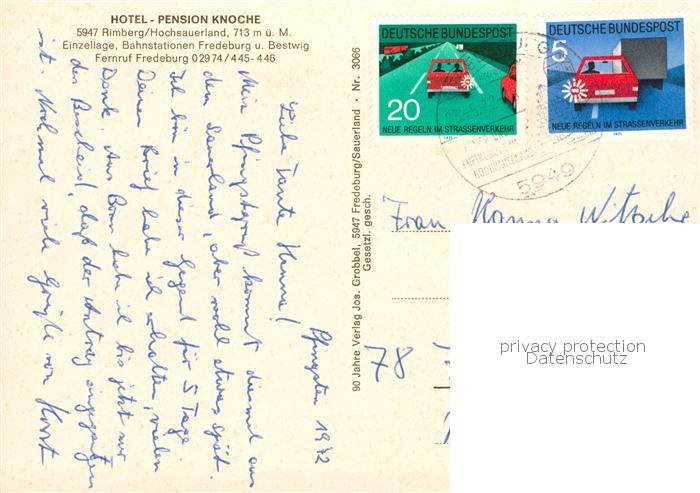 HOTEL - PENSION KNOCHE
5947 Rimberg/Hochsauerland, 713 m ü. M.
Einzellage, Bahnstationen Fredeburg u. Bestwig
Fernruf Fredeburg 02974/445-446
Pfingsten 1972
Liebe Tante Hanna!
Mein Pfingstgruß kommt diesmal aus
dem Sauerland, aber wohl etwas spät.
Ich bin in dieser Gegend für 5 Tage
Deinen Brief habe ich erhalten, vielen
Dank. Aus Bonn habe ich bis jetzt nur
den Bescheid, daß der Antrag eingegangen
ist. Nochmal viele Grüße von Horst
90 Jahre Verlag Jos. Grobbel, 5947 Fredeburg/Sauerland · Nr. 3066
Gesetzl. gesch.
DEUTSCHE BUNDESPOST
20
NEUE REGELN IM STRASSENVERKEHR
DEUTSCHE BUNDESPOST
5
NEUE REGELN IM STRASSENVERKEHR
5949
Frau Hanna
78
privacy protection
Datenschutz